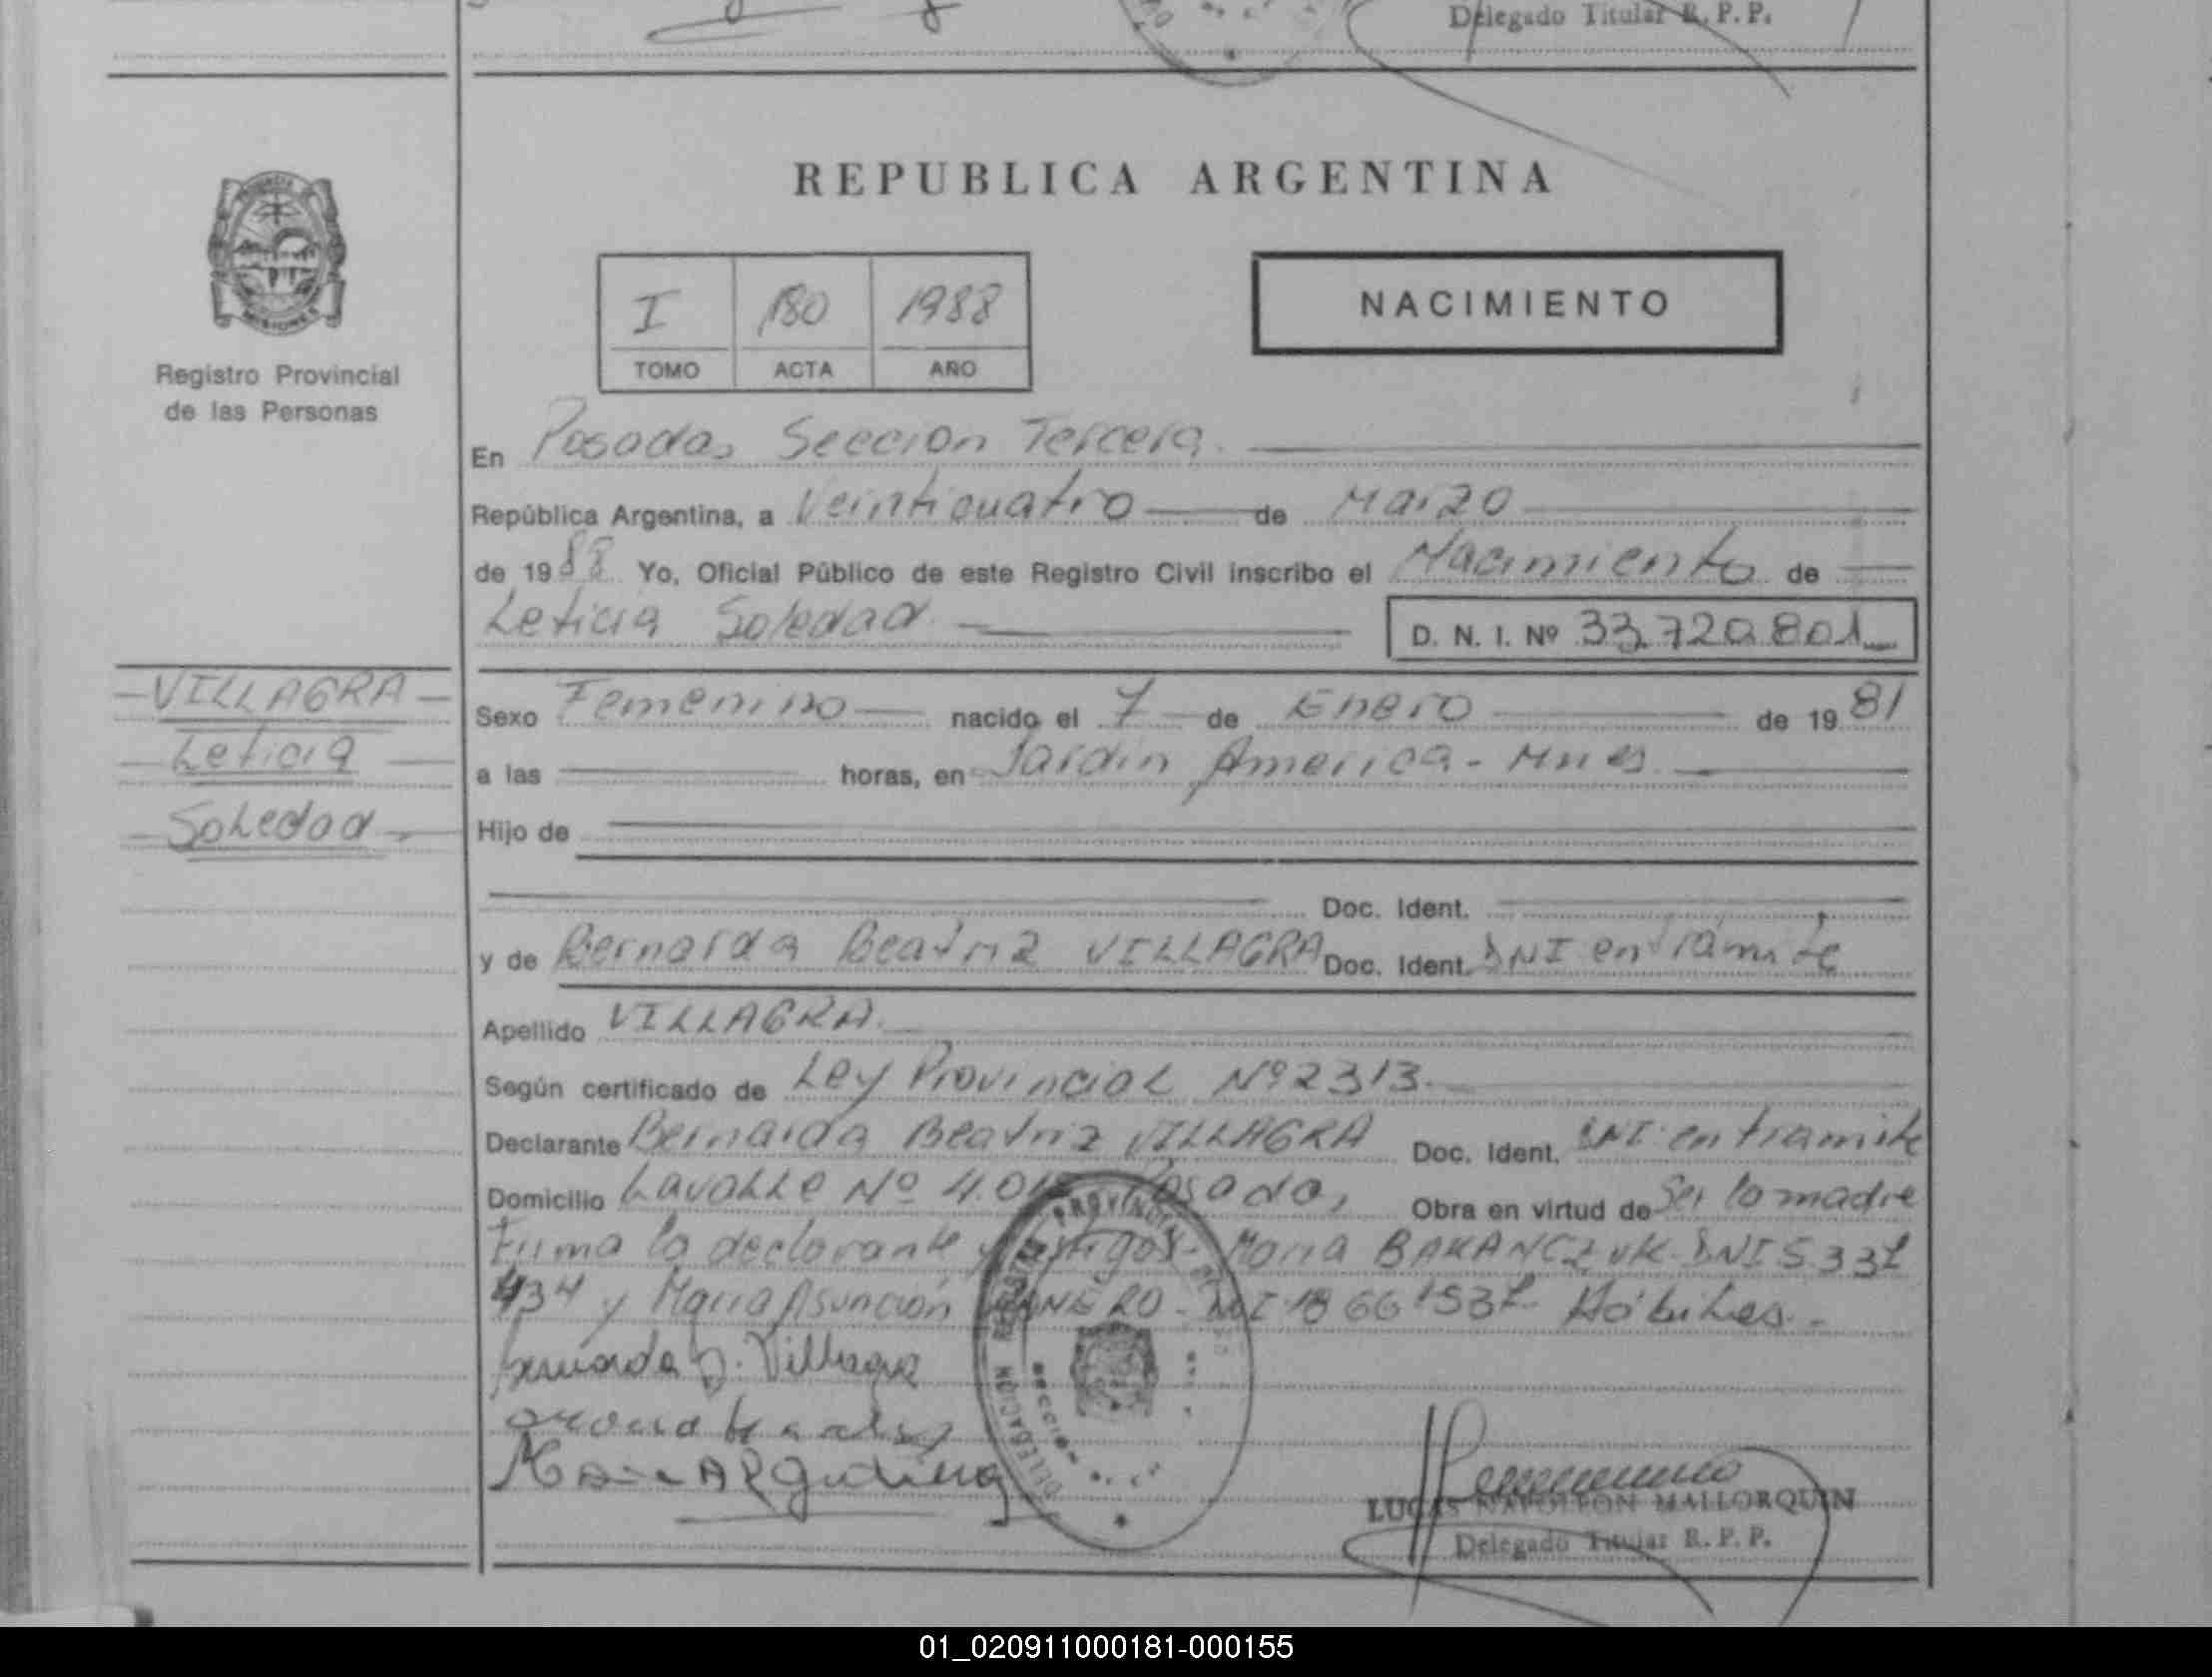 Delegado Titular R. P. P.
REPUBLICA ARGENTINA
MISIONES
Registro Provincial
de las Personas
I 180 1988
TOMO ACTA AÑO
NACIMIENTO
En Posadas Seccion Tercera.
República Argentina, a Veinticuatro de Marzo
de 1988 Yo, Oficial Público de este Registro Civil inscribo el Nacimiento de
Leticia Soledad. D. N. I. Nº 33.720.801
VILLAGRA
Leticia
Soledad
Sexo Femenino nacido el 7 de Enero de 1981
a las horas, en Jardin America - Mnes
Hijo de
Doc. Ident.
y de Bernarda Beatriz VILLAGRA Doc. Ident. DNI en tramite
Apellido VILLAGRA.
Según certificado de Ley Provincial Nº 2313.
Declarante Bernarda Beatriz VILLAGRA Doc. Ident. DNI en tramite
Domicilio Lavalle Nº Posadas, Obra en virtud de Ser la madre
Firma la declarante y testigos - Maria BARANCZUK - DNI 5.337
434 y Maria Asunción DNI Hábiles. -
Bernarda B. Villagra
PROVINCIA
DELEGACION
SECCION
LUCAS NAPOLEON MALLORQUIN
Delegado Titular R. P. P.
01_020911000181-000155